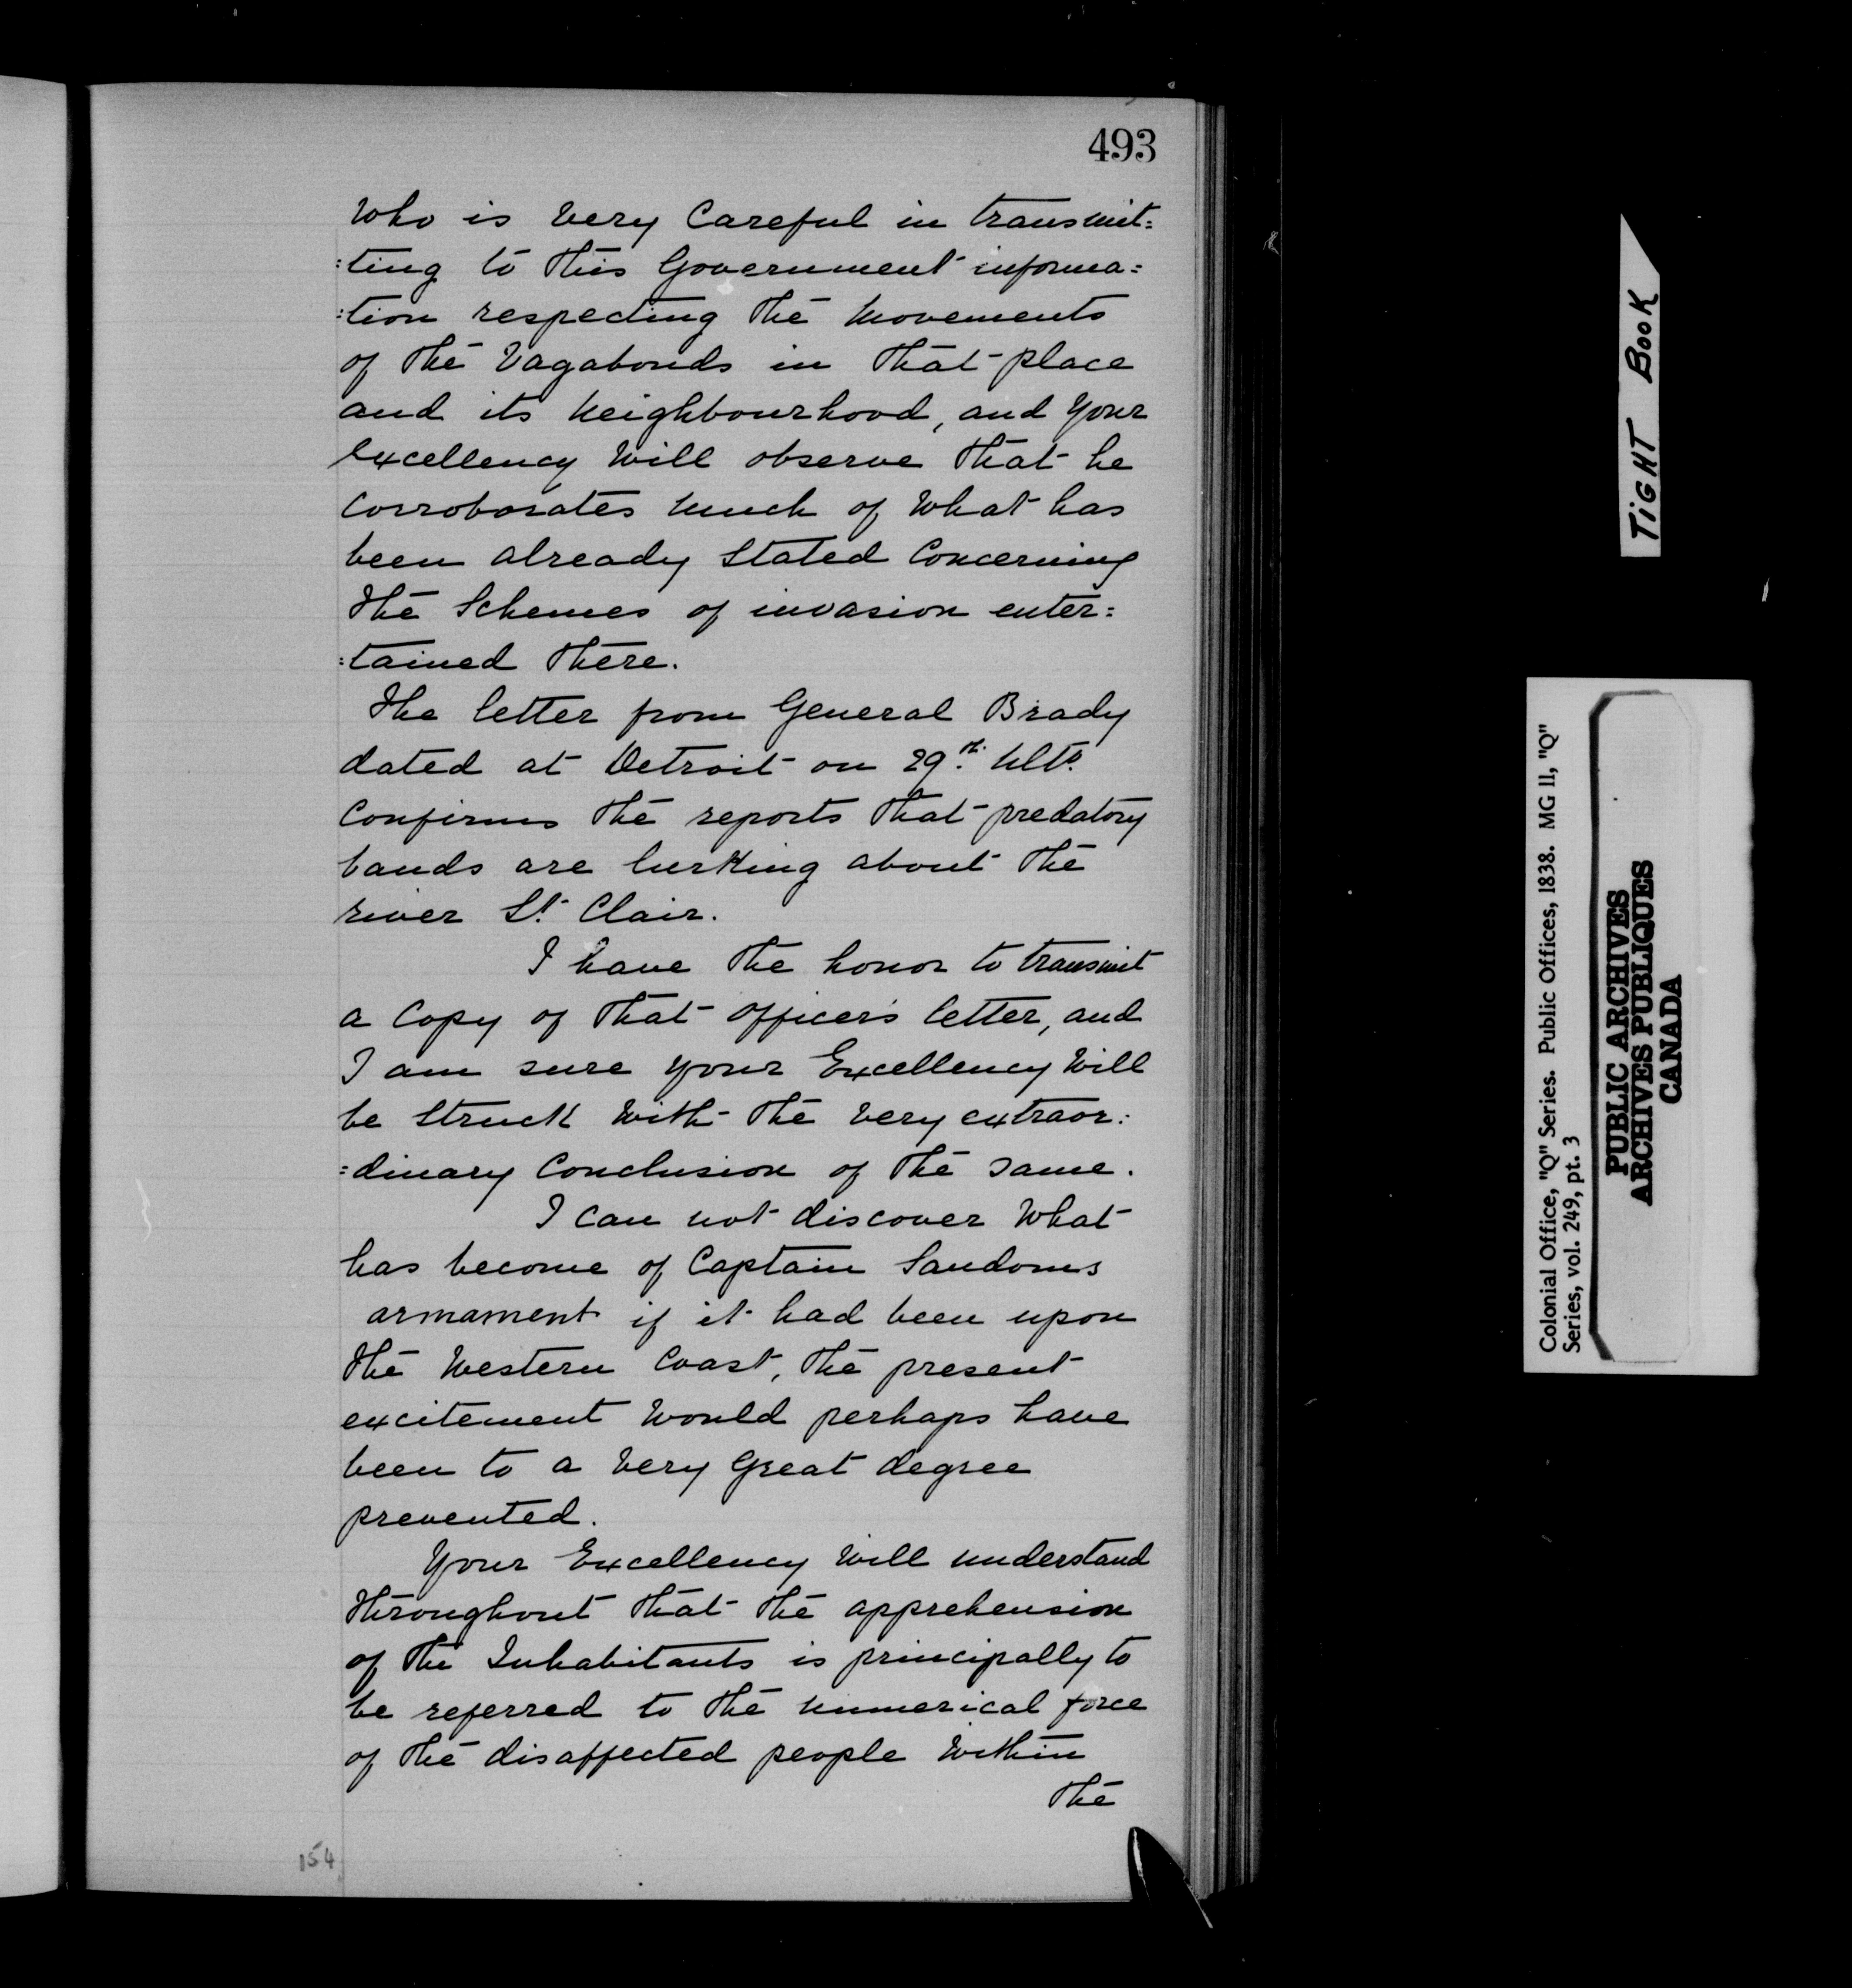 493
Who is Very Careful in transmit=
=ting to this Government informa=
=tion respecting the Movements
of the Vagabonds in that place
and its Neighbourhood, and Your
Excellency Will observe that he
Corroborates much of What has
been already Stated Concerning
the Schemes of invasion enter=
=tained there.
The letter from General Brady
dated at Detroit on 29th. Ulto.
Confirms the reports that predatory
bands are lurking about the
river St. Clair.
I have the honor to transmit
a Copy of that Officer's letter, and
I am sure your Excellency Will
be Struck With the Very extraor:
=dinary Conclusion of the same.
I Can not discover What
has become of Captain Sandoms
armament if it had been upon
the Western Coast, the present
excitement Would perhaps have
been to a Very Great degree
prevented.
Your Excellency Will understand
throughout that the apprehension
of the Inhabitants is principally to
be referred to the numerical force
of the disaffected people Within
the
154
TIGHT BOOK
Colonial Office, "Q" Series. Public Offices, 1838. MG 11, "Q"
Series, vol. 249, pt. 3
PUBLIC ARCHIVES
ARCHIVES PUBLIQUES
CANADA